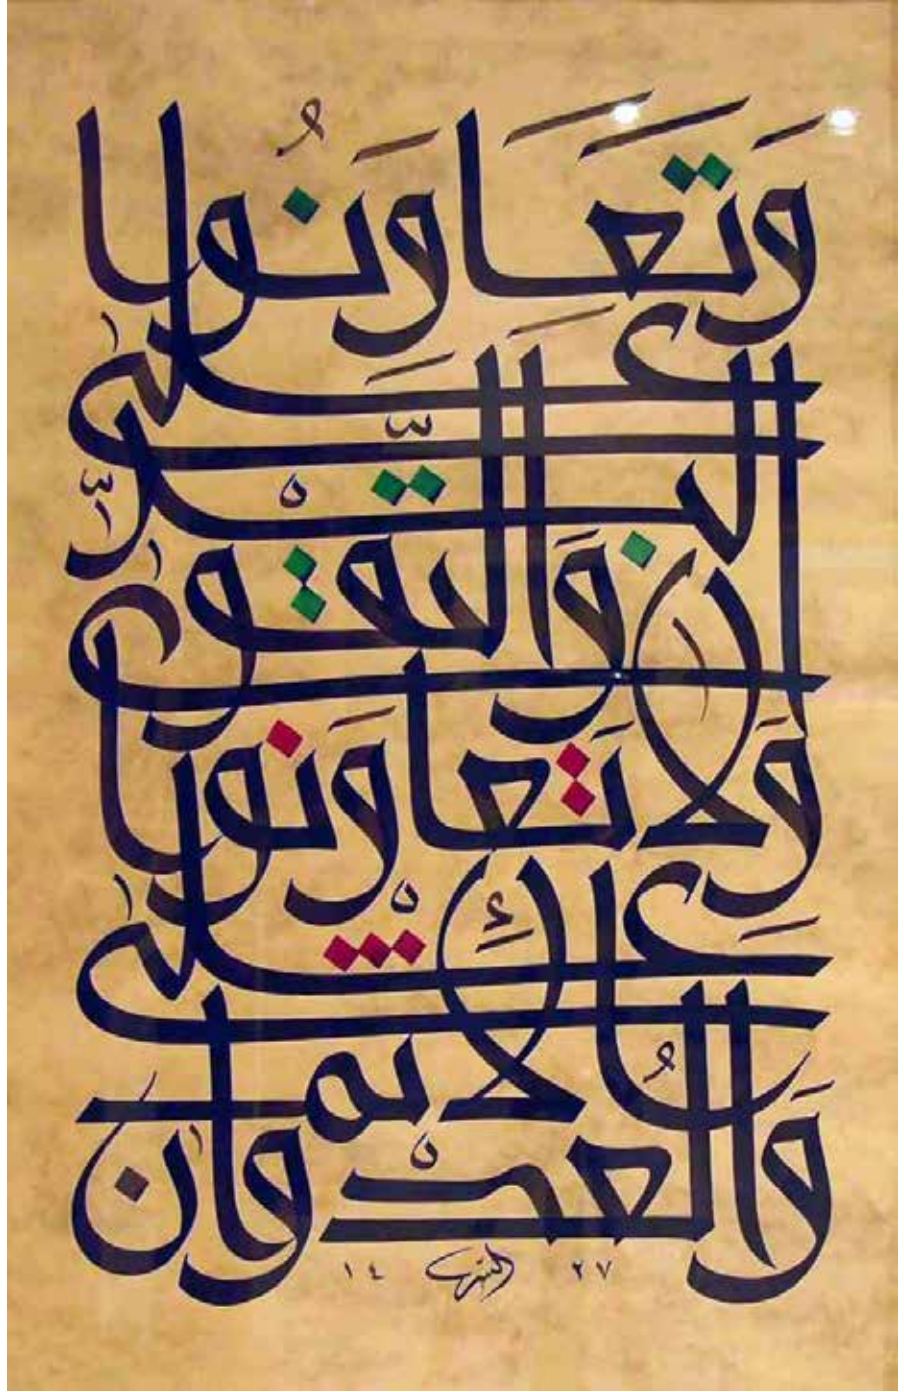 وَتَعَاوَنُوا
عَلَى
البْرِّ
وَالتَّقْوٰى
وَلَا تَعَاوَنُوا
عَلَى الْأثم
وَالعُدْوَان
١٤ ٢٧